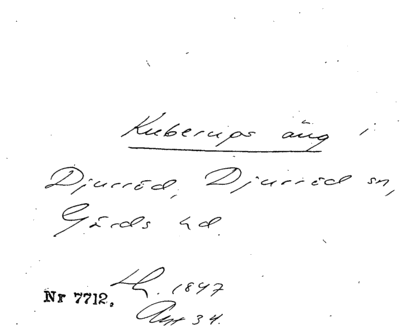 Kuberups äng i
Djurröd, Djurröd sn,
Gärds hd.
Lh. 1847
Nr 7712, Akt 34.